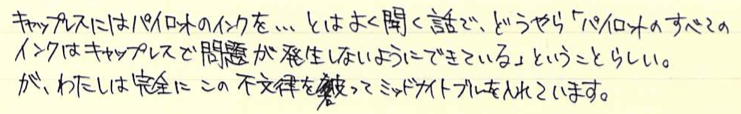 キャップレスにはパイロットのインクを…とはよく聞く話で、どうやら「パイロットのすべての
インクはキャップレスで問題が発生しないようにできている」ということらしい。
が、わたしは完全にこの不文律を破ってミッドナイトブルーを入れています。